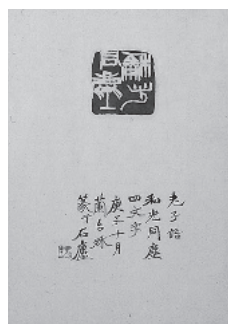 老子語
和光同塵
四文字
庚子十月
蘭
篆于石廬